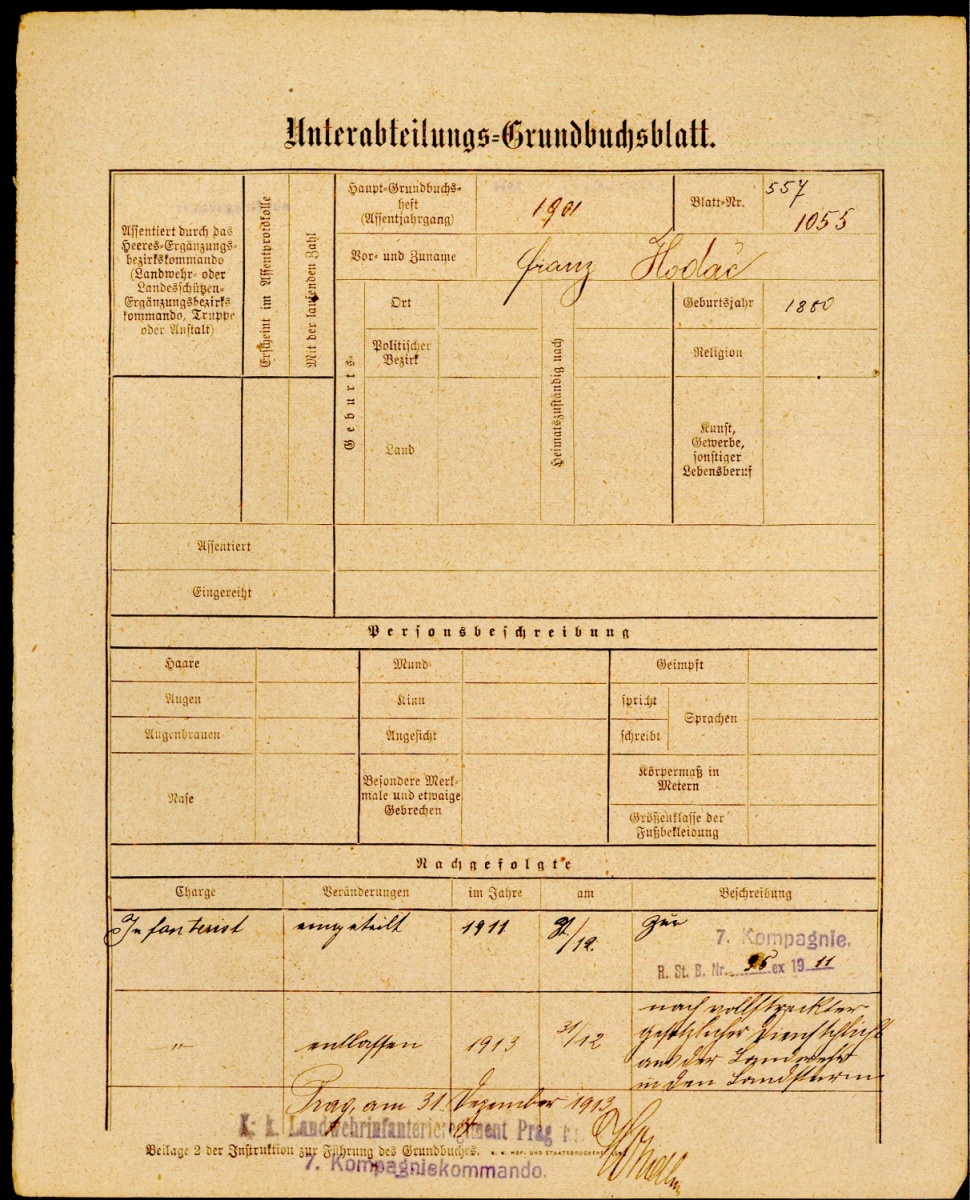 Unterabteilungs=Grundbuchsblatt.
Assentiert durch das
Heeres=Ergänzungs-
bezirkskommando
(Landwehr- oder
Landesschützen-
Ergänzungsbezirks
kommando, Truppe
oder Anstalt)
Erscheint im Assentprotokolle
Mit der laufenden Zahl
Haupt=Grundbuchs=
heft
(Assentjahrgang)
1901
Blatt=Nr.
557
1055
Vor= und Zuname
Franz Hodač
Geburts-
Ort
Politischer
Bezirk
Land
Heimatszuständig nach
Geburtsjahr
1880
Religion
Kunst,
Gewerbe,
sonstiger
Lebensberuf
Assentiert
Eingereiht
Personsbeschreibung
Haare
Mund
Geimpft
Augen
Kinn
spricht
Sprachen
Augenbrauen
Angesicht
schreibt
Nase
Besondere Merk=
male und etwaige
Gebrechen
Körpermaß in
Metern
Größenklasse der
Fußbekleidung
Nachgefolgte
Charge
Veränderungen
im Jahre
am
Beschreibung
Infanterist
eingeteilt
1911
/12.
zur
7. Kompagnie.
R. St. B. Nr. ex 19 11
"
entlassen
1913
31/12
nach vollstreckter
gesetzlicher Dienstpflicht
aus der Landwehr
in den Landsturm
Prag, am 31 Dezember 1913
K. k. Landwehrinfanterieregiment Prag
Beilage 2 der Instruktion zur Führung des Grundbuches. K. K. HOF- UND STAATSDRUCKEREI
7. Kompagniekommando.